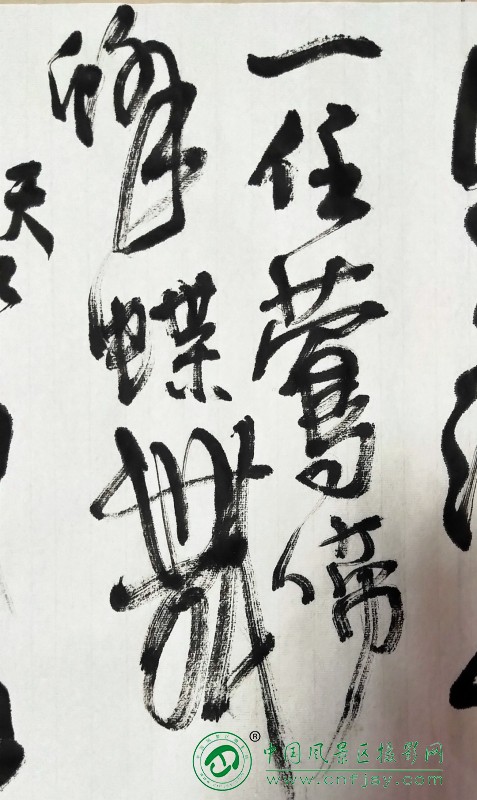 一任莺啼
蜂蝶舞
天
®
中国风景区摄影网
www.cnfjqy.com